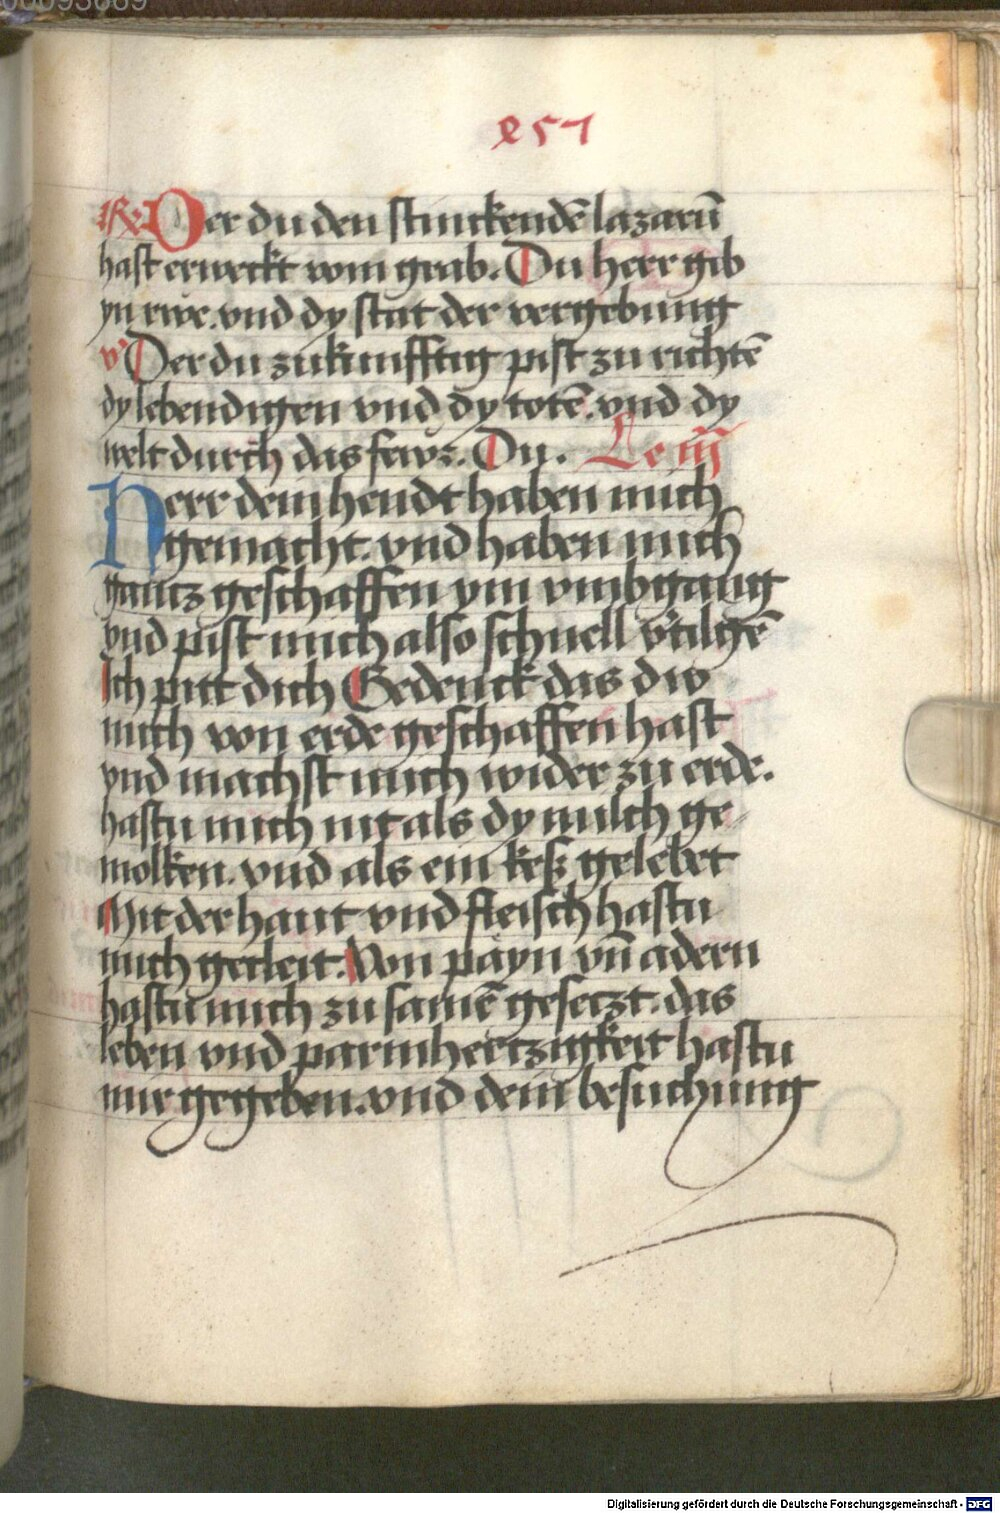 257
R Der du den stinckendē lazarū
hast erweckt vom grab. Du herr gib
yn rwe. vnd dy stat der vergebung
v Der du zukunfftig pist zu richtē
dy lebendigen vnd dy totē. vnd dy
welt durch das fewr. Du. Le iij
Herr dein hendt haben mich
gemacht. vnd haben mich
gantz geschaffen ym vmbgang
vnd pist mich also schnell v'tilgē
Ich pitt dich Gedenck das dw
mich von erde geschaffen hast
vnd machst mich wider zu erde.
hastu mich nit als dy milch ge
molken. vnd als ein keß gelebet
Mit der haut vnd fleisch hastu
mich gecleit. Von payn vn̄ adern
hastu mich zu samē gesetzt. das
leben vnd parmhertzigkeit hastu
mir gegeben. vnd dein besuchung
Digitalisierung gefördert durch die Deutsche Forschungsgemeinschaft - DFG